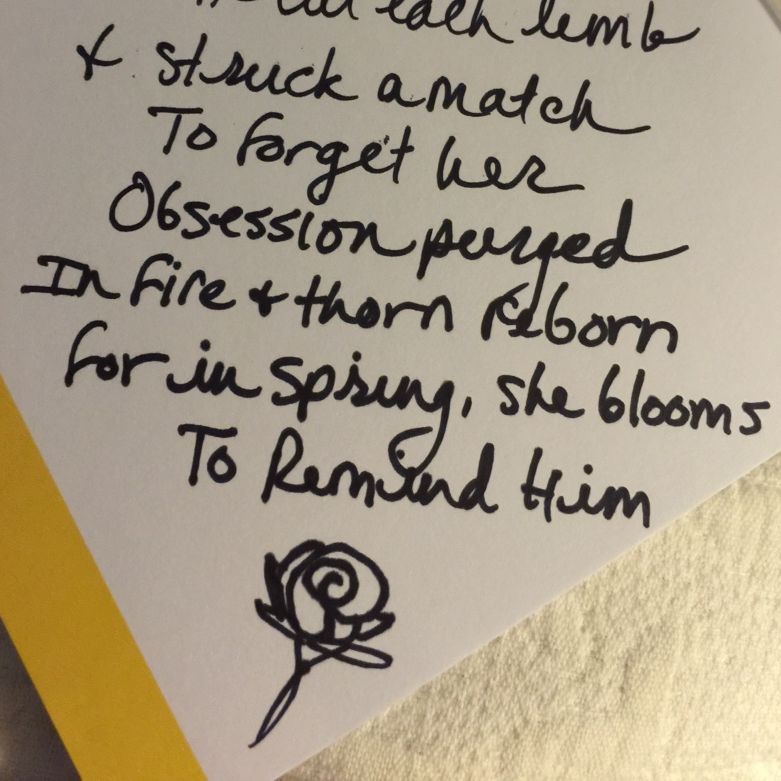 each limb
& struck a match
To forget her
Obsession purged
In fire & thorn Reborn
for in spring, she blooms
To Remind Him